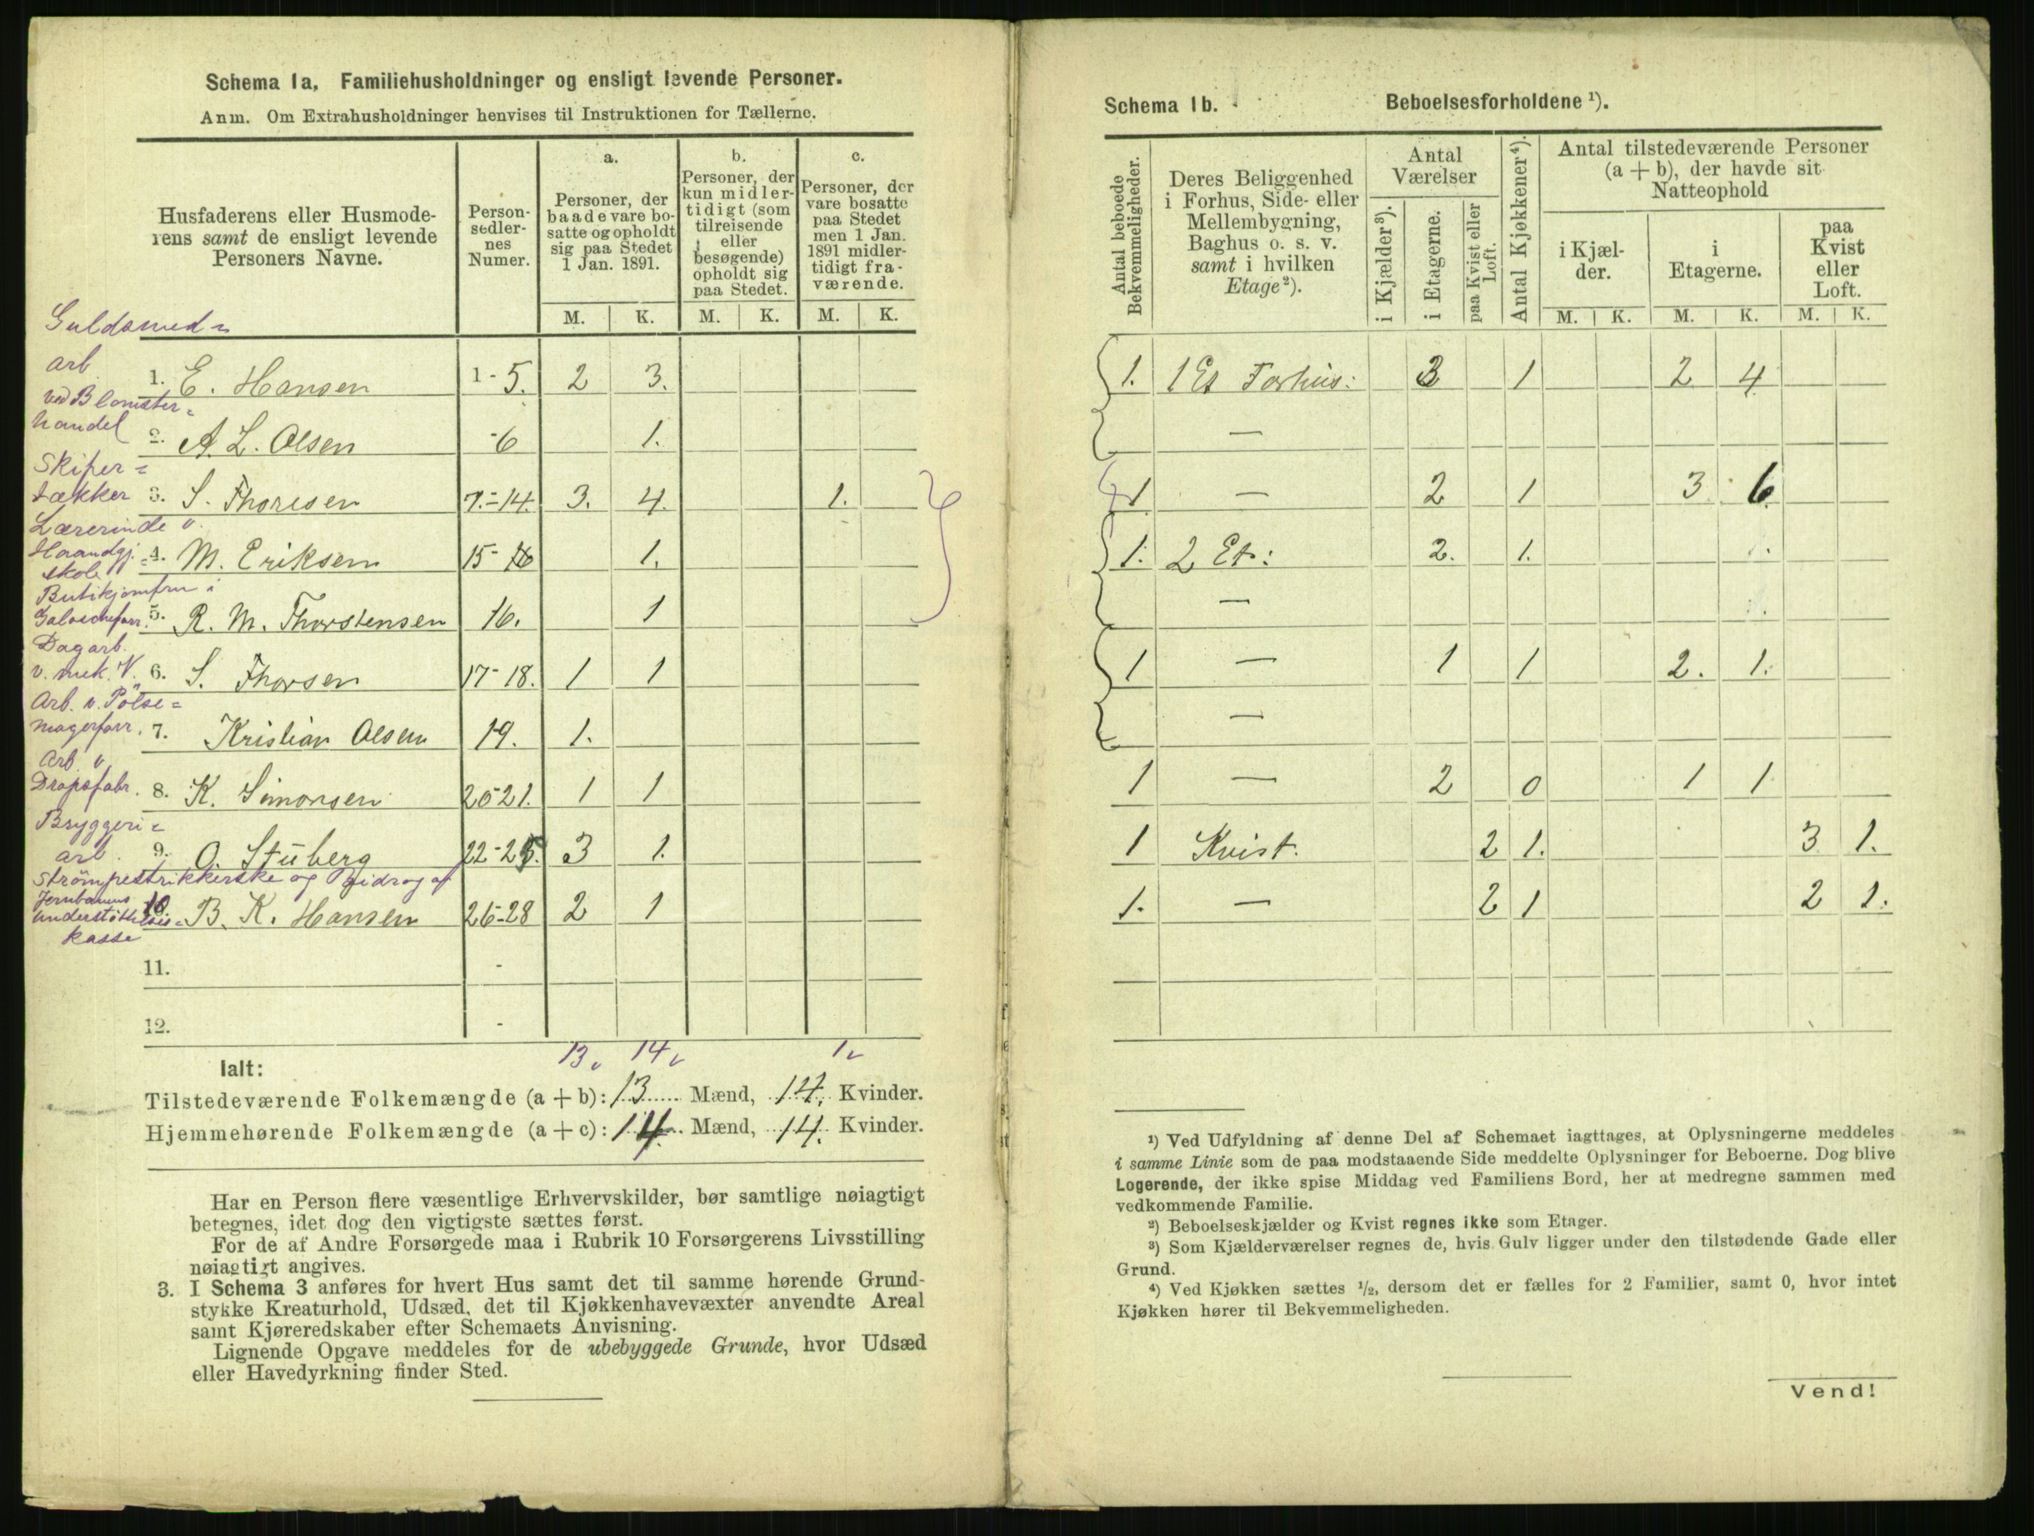 Schema 1a, Familiehusholdninger og ensligt levende Personer.
Anm. Om Extrahusholdninger henvises til Instruktionen for Tællerne.
Husfaderens eller Husmoderens samt de ensligt levende Personers Navne.
Personsedlernes Numer.
a.
Personer, der baade vare bosatte og opholdt sig paa Stedet 1 Jan. 1891.
b.
Personer, der kun midlertidigt (som tilreisende eller besøgende) opholdt sig paa Stedet.
c.
Personer, der vare bosatte paa Stedet men 1 Jan. 1891 midlertidigt fraværende.
M. K. M. K. M. K.
Guldsmed=
arb
1. E. Hansen 1-5. 2 3.
ved Blomster=
handel
2. A. L. Olsen -6 1.
Skifer=
tækker 3. S. Thoresen 7.-14. 3. 4. 1.
Lærerinde v.
Haandgj.= 4. M. Eriksen 15-16 1.
skole
Butikjomfru i
Galoscheforr. 5. R. M. Thorstensen 16. 1
Dagarb.
v. mek. V. 6. S. Thorsen 17-18. 1 1
Arb. v. Pölse=
magerforr. 7. Kristian Olsen 19. 1.
Arb. v.
Dropsfabr. 8. K. Simonsen 20-21. 1 1
Bryggeri=
arb. 9. O. Stuberg 22-25. 3 1.
Strømpestrikkerske og Bidrag af
Jernbanens
understöttelses= 10 B. K. Hansen 26-28 2 1
kasse
11. -
12. -
13 v 14 v 1 v
Ialt:
Tilstedeværende Folkemængde (a + b): 13 Mænd, 14. Kvinder.
Hjemmehørende Folkemængde (a + c): 14. Mænd, 14. Kvinder.
Har en Person flere væsentlige Erhvervskilder, bør samtlige nøiagtigt
betegnes, idet dog den vigtigste sættes først.
For de af Andre Forsørgede maa i Rubrik 10 Forsørgerens Livsstilling
nøiagtigt angives.
3. I Schema 3 anføres for hvert Hus samt det til samme hørende Grund-
stykke Kreaturhold, Udsæd, det til Kjøkkenhavevæxter anvendte Areal
samt Kjøreredskaber efter Schemaets Anvisning.
Lignende Opgave meddeles for de ubebyggede Grunde, hvor Udsæd
eller Havedyrkning finder Sted.
Schema 1b. Beboelsesforholdene ¹).
Antal beboede Bekvemmeligheder.
Deres Beliggenhed i Forhus, Side- eller Mellembygning, Baghus o. s. v. samt i hvilken Etage ²).
Antal Værelser
i Kjælder ³).
i Etagerne.
paa Kvist eller Loft.
Antal Kjøkkener ⁴).
Antal tilstedeværende Personer (a + b), der havde sit Natteophold
i Kjælder.
i Etagerne.
paa Kvist eller Loft.
M. K. M. K. M. K.
1. 1 Et Forhus: 3 1 2 4
—
1 — 2 1 3 6
1. 2 Et: 2. 1.
—
1 — 1 1 2. 1.
—
1 — 2 0 1 1
1 Kvist. 2 1. 3 1.
1. — 2 1 2 1.
¹) Ved Udfyldning af denne Del af Schemaet iagttages, at Oplysningerne meddeles
i samme Linie som de paa modstaaende Side meddelte Oplysninger for Beboerne. Dog blive
Logerende, der ikke spise Middag ved Familiens Bord, her at medregne sammen med
vedkommende Familie.
²) Beboelseskjælder og Kvist regnes ikke som Etager.
³) Som Kjælderværelser regnes de, hvis Gulv ligger under den tilstødende Gade eller
Grund.
⁴) Ved Kjøkken sættes ¹/₂, dersom det er fælles for 2 Familier, samt 0, hvor intet
Kjøkken hører til Bekvemmeligheden.
Vend!